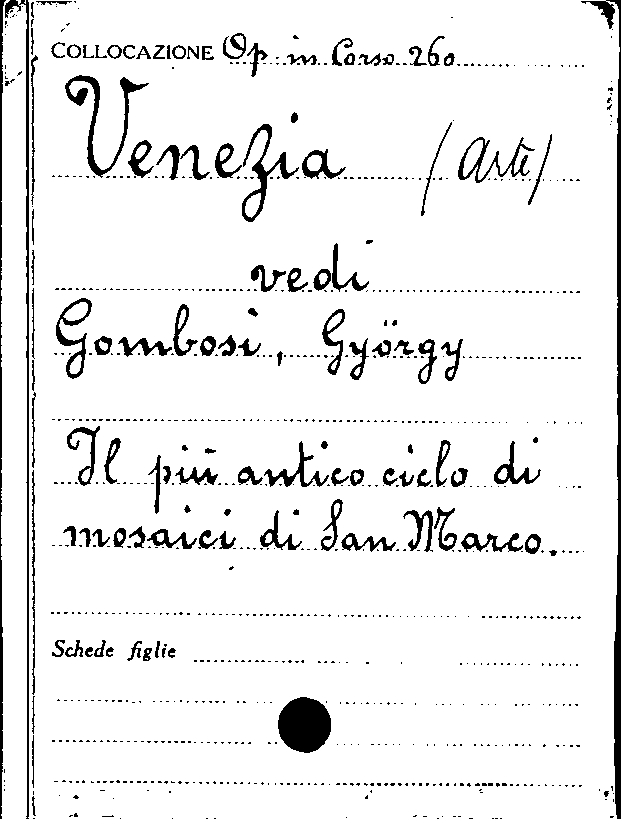 COLLOCAZIONE Op. in Corso 260
Venezia (Arte)
vedi
Gombosi, György
Il più antico ciclo di
mosaici di San Marco.
Schede figlie